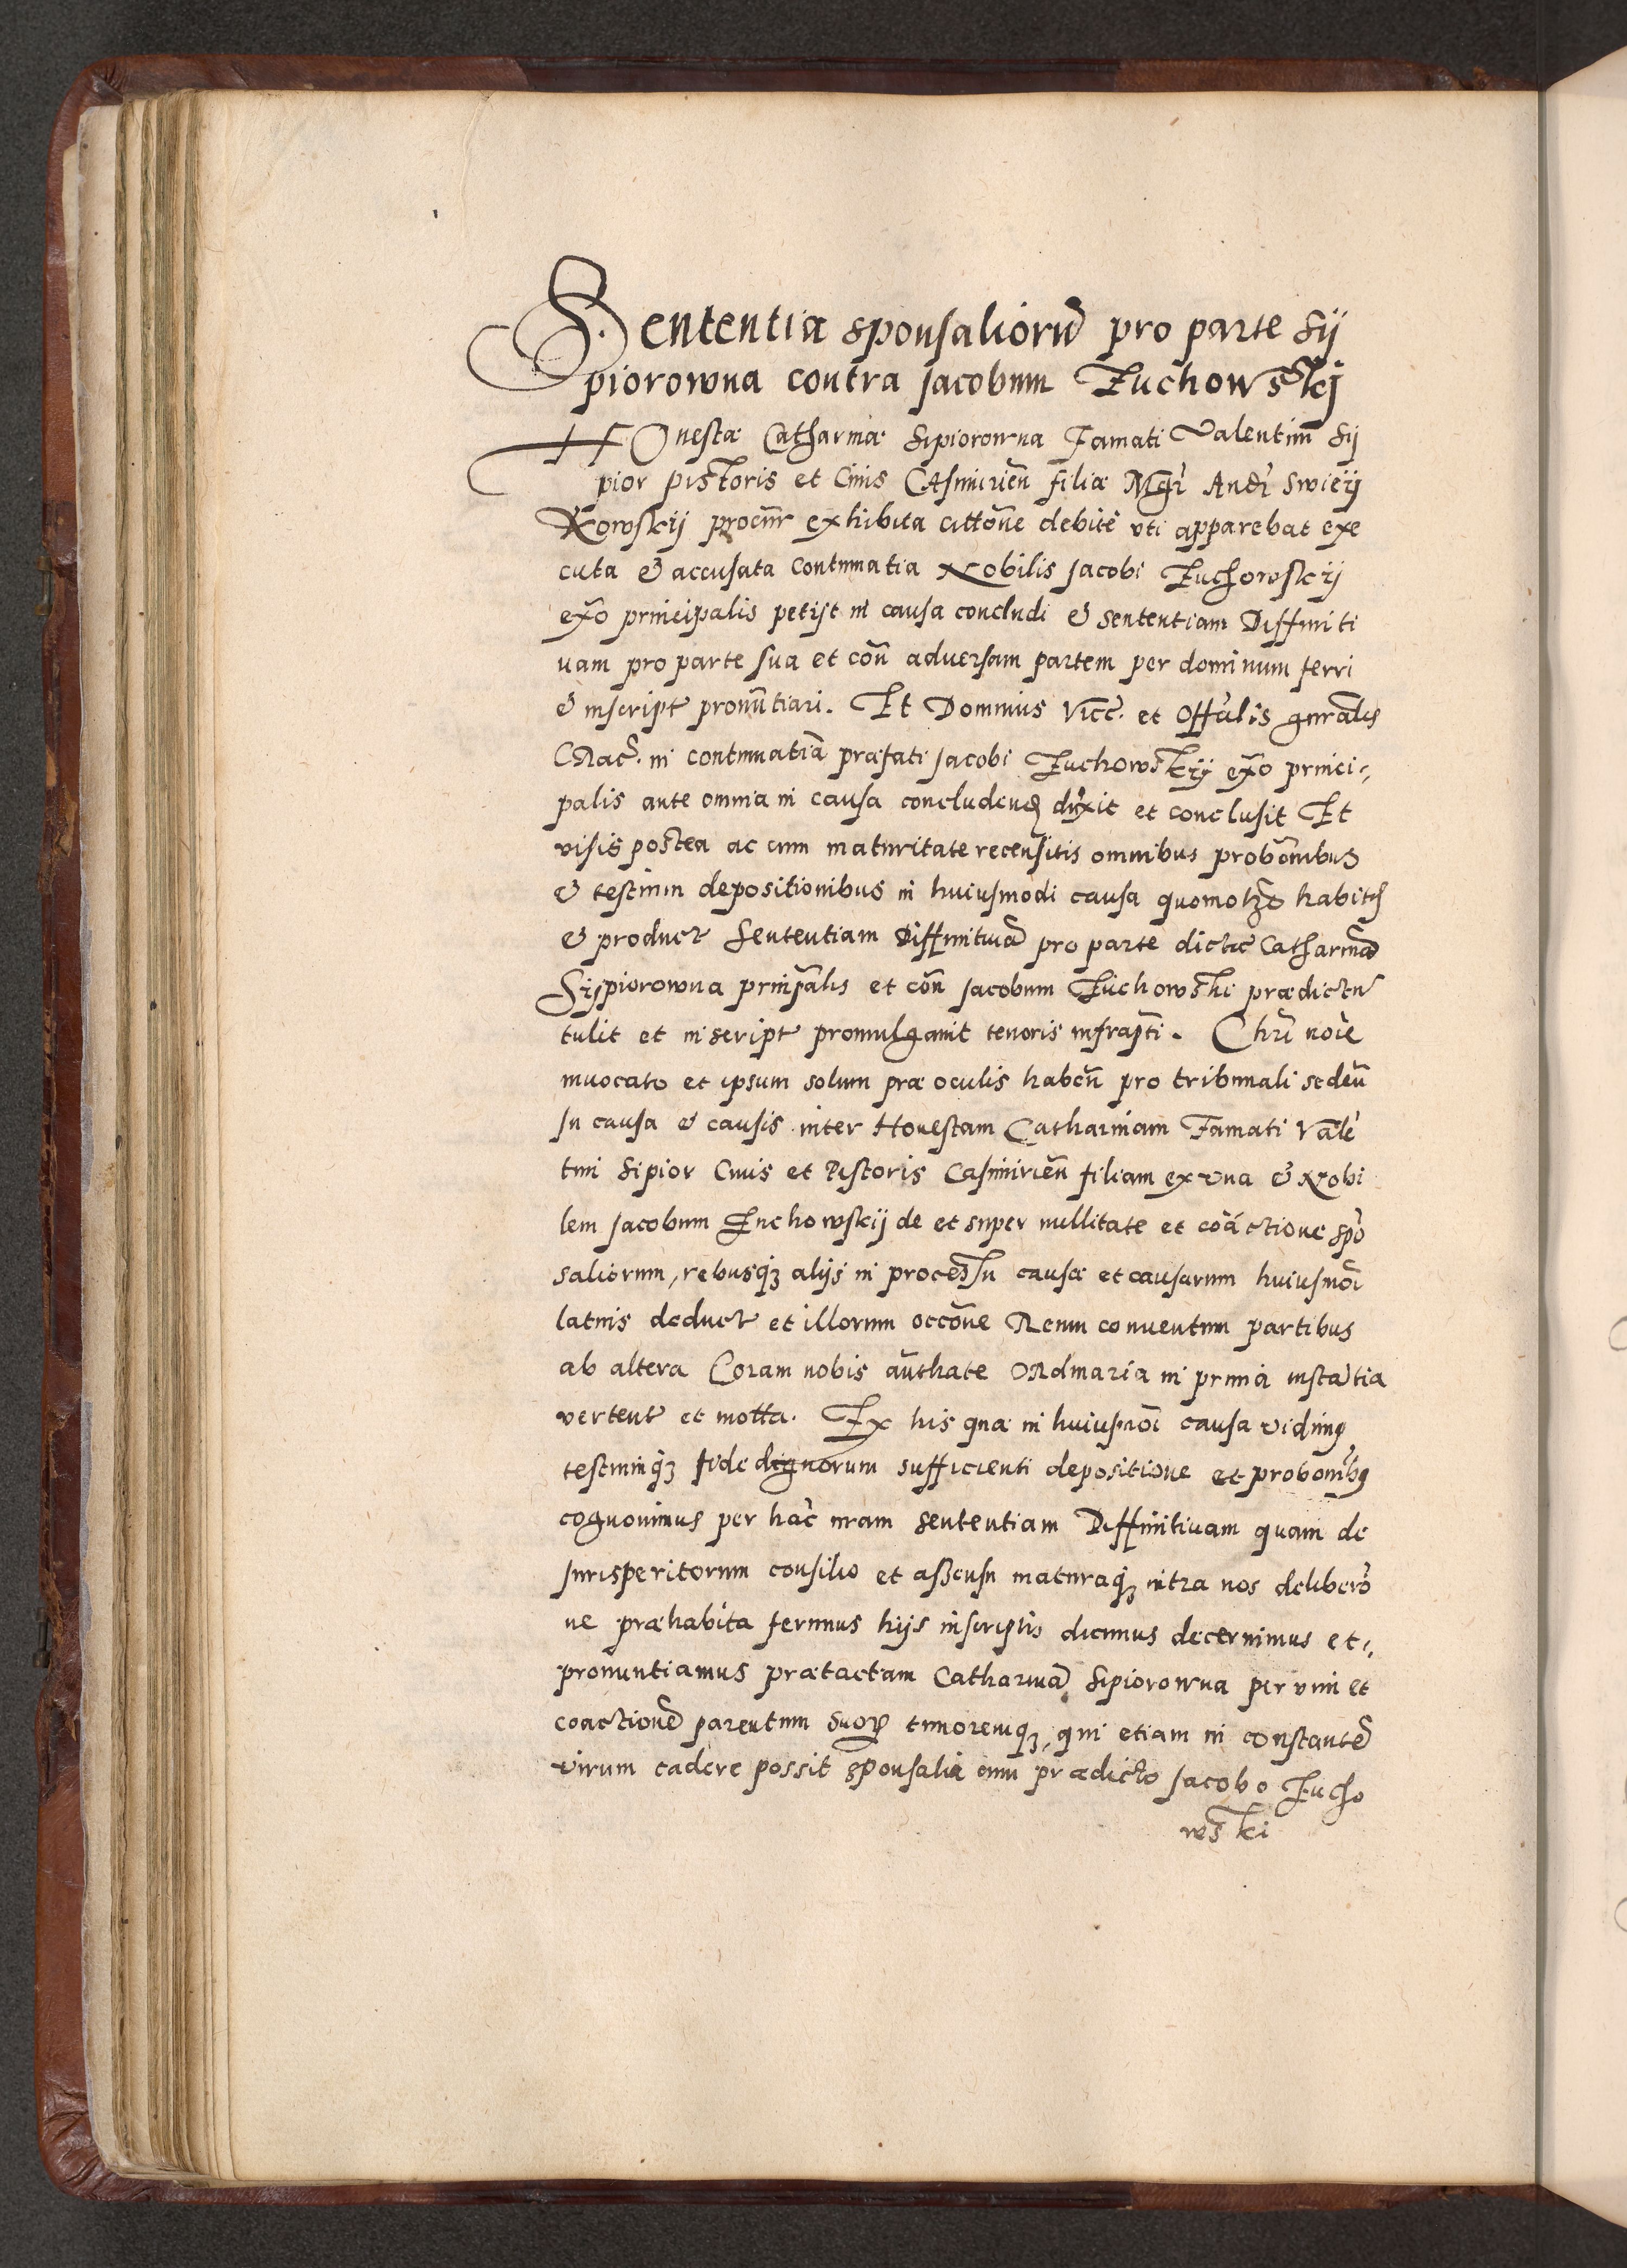 Sententia sponsaliorũ pro parte Sij
piorowna contra Jacobum Zuchowskij
HOnestæ Catharinæ Sipiorowna Famati Valentini Sij
pior Pistoris et Ciuis Casimirieñ filiæ Mgri Andr Swierij
kowskij procur exhibita cittõne debite vti apparebat exe
cuta & accusata contumatia Nobilis Jacobi Zuchowskij
exo principalis petijt in causa concludi & sententiam Diffiniti
uam pro parte sua et coñ aduersam partem per dominum ferri
& inscript pronũtiari. Et Dominus Vicc. et Offãlis gnrãlis
Crac. in contumatiã præfati Jacobi Zuchowskij exo princi-
palis ante omnia in causa concludend duxit et conclusit Et
visis postea ac cum maturitate recensitis omnibus probõnibus
& testium depositionibus in huiusmodi causa quomolz habitis
& product Sententiam Diffinitiuã pro parte dictæ Catharinæ
Sijpiorowna prinpãlis et coñ Jacobum Zuchowski prædictũ
tulit et inscript promulgauit tenoris infrapti. Chri noie
inuocato et ipsum solum præ oculis habeñ pro tribunali sedeñ
In causa & causis inter Honestam Catharinam Famati Valẽ
tini Sipior Ciuis et Pistoris Casimirieñ filiam ex vna & Nobi
lem Jacobum Zuchowskij de et super nullitate et coactione spõ
saliorum, rebusqz alijs in processu causæ et causarum huiusmõi
latius deduct et illorum occõne Reum conuentum partibus
ab altera Coram nobis authate ORdinaria in prima instãtia
vertent et motta. Ex his quæ in huiusmõi causa vidimus
testiumqz fide dignorum sufficienti depositione et probonibus
cognouimus per hãc nram sententiam Diffinitiuam quam de
Jurisperitorum consilio et assensu maturaqz intra nos deliberõ
ne præhabita ferimus hijs inscriptis dicimus decernimus et-
pronuntiamus prætactam Catharinã Sipiorowna per vim et
coactionẽ parentum suor timoremqz, qui etiam in constantẽ
virum cadere possit sponsalia cum prædicto Jacobo Zucho
wski